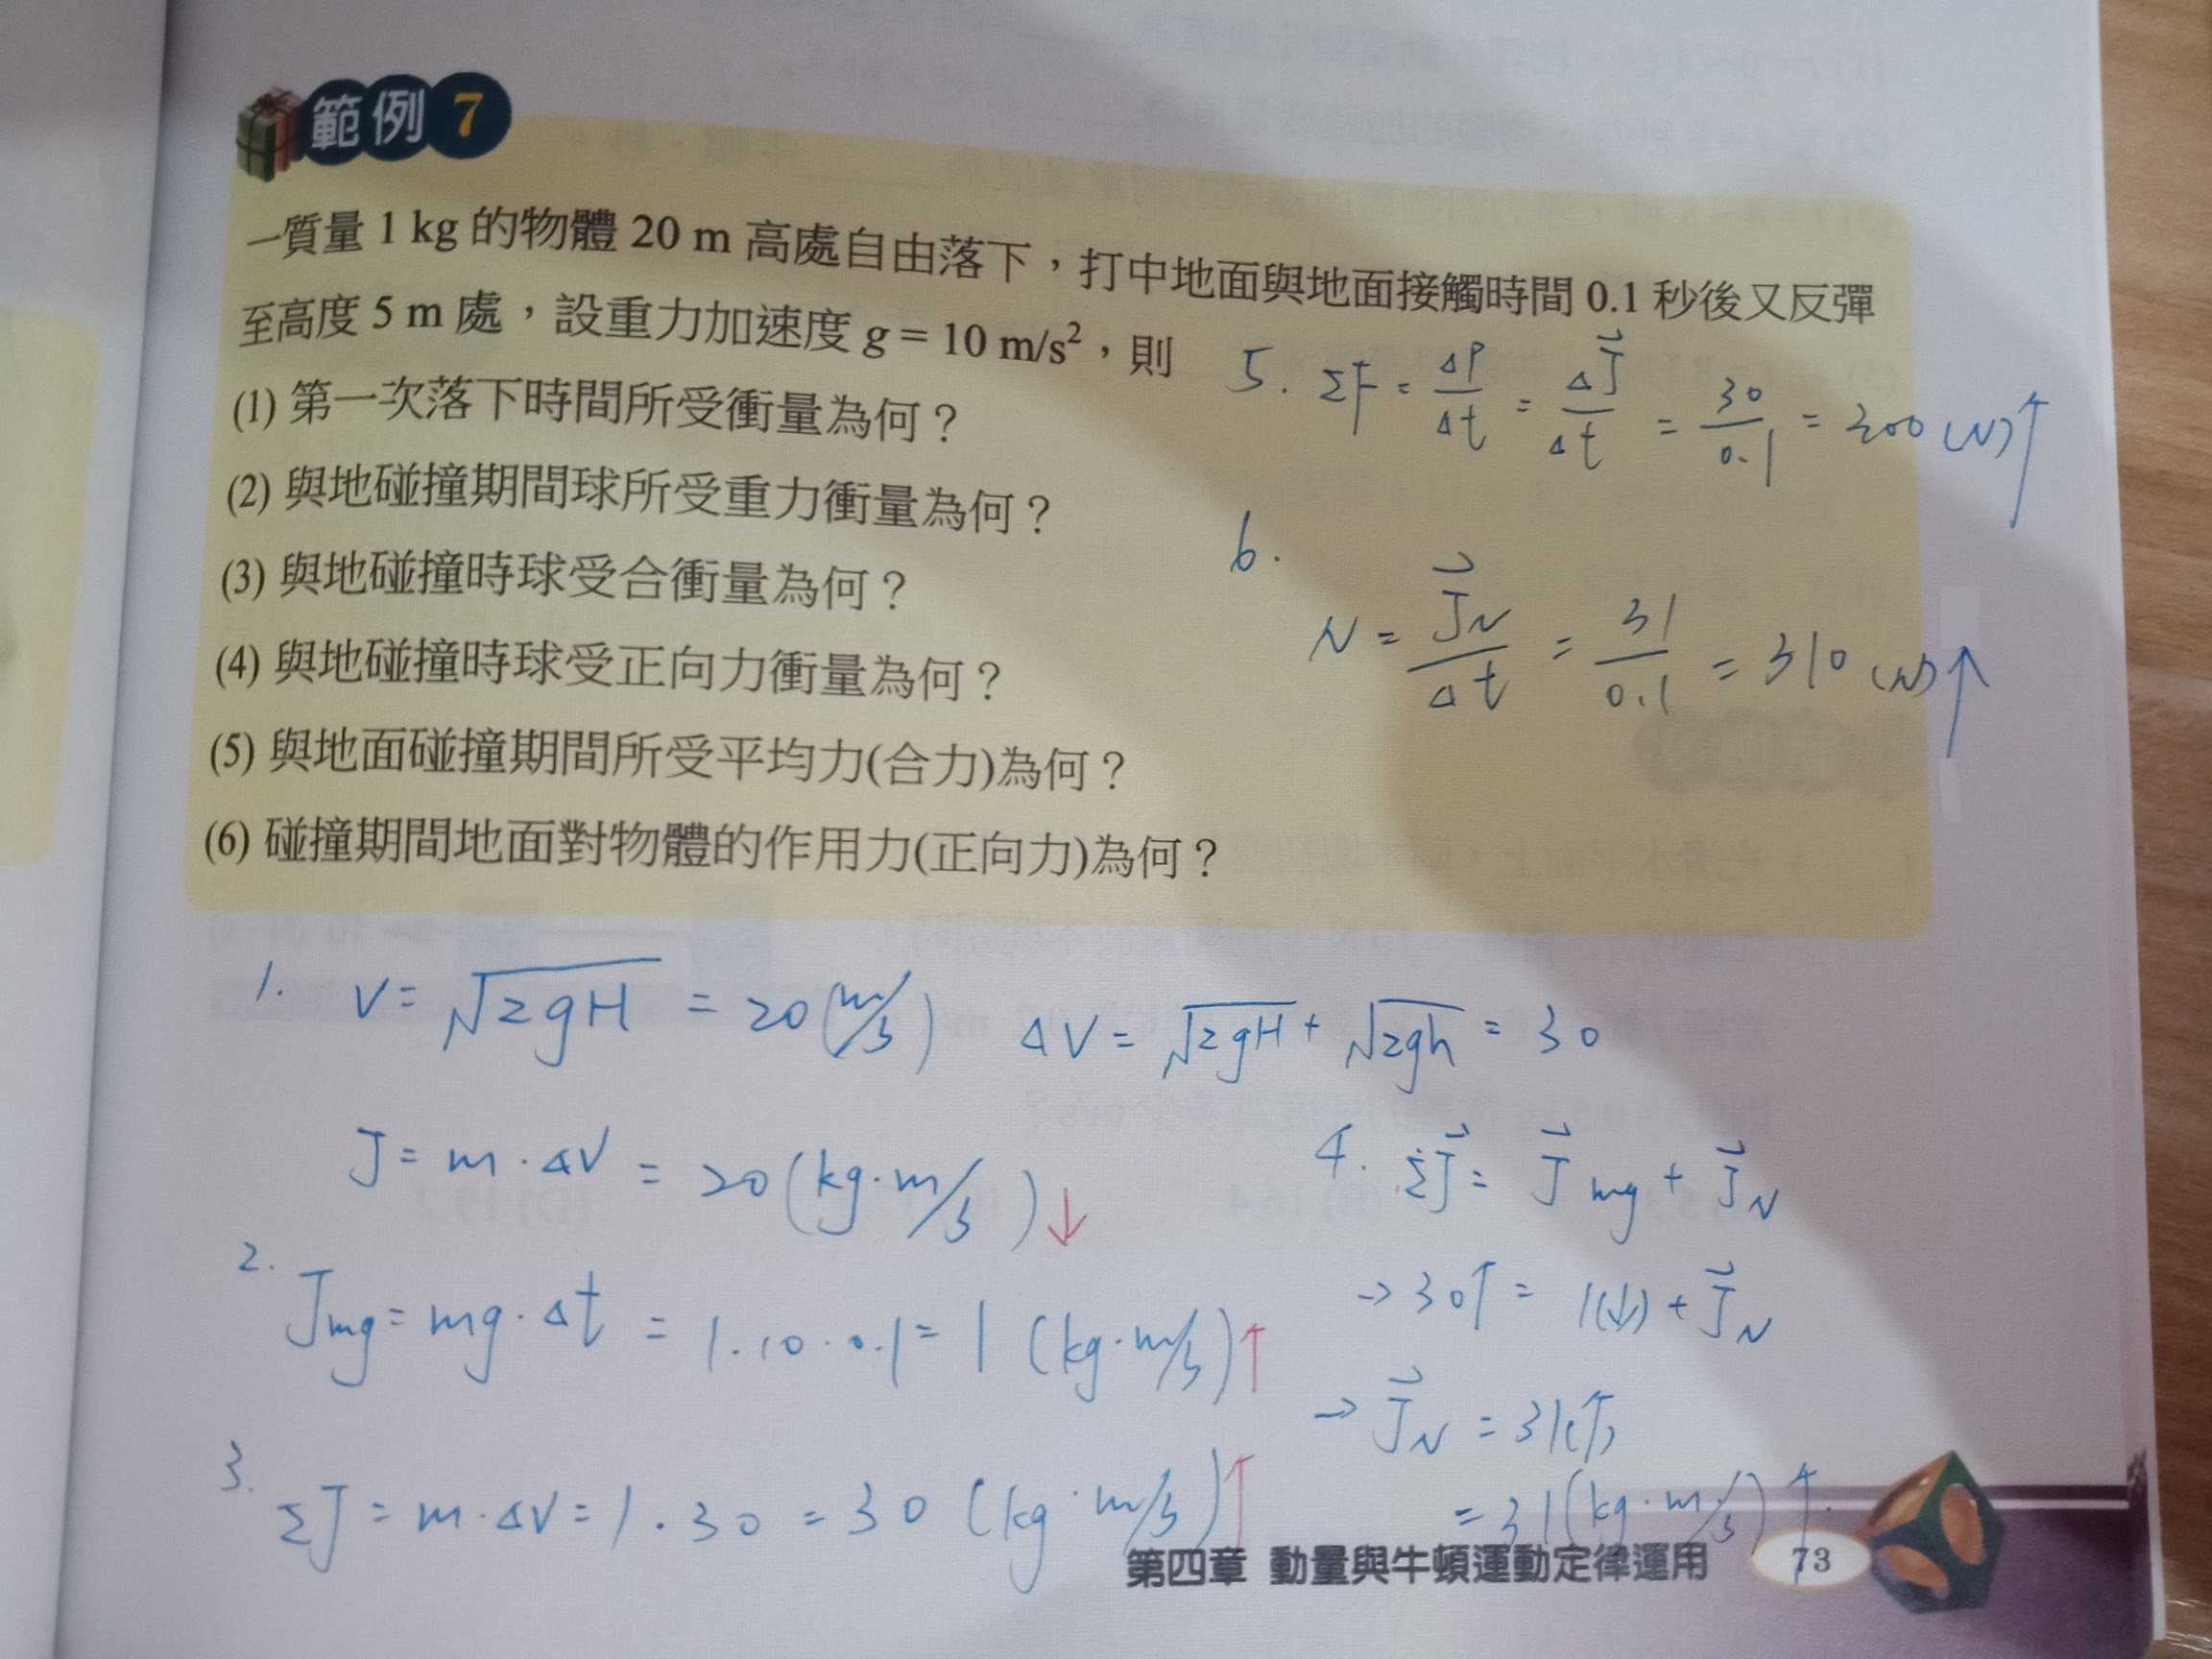 範例 7
一質量 1 kg 的物體 20 m 高處自由落下，打中地面與地面接觸時間 0.1 秒後又反彈
至高度 5 m 處，設重力加速度 g = 10 m/s²，則
(1) 第一次落下時間所受衝量為何？
(2) 與地碰撞期間球所受重力衝量為何？
(3) 與地碰撞時球受合衝量為何？
(4) 與地碰撞時球受正向力衝量為何？
(5) 與地面碰撞期間所受平均力(合力)為何？
(6) 碰撞期間地面對物體的作用力(正向力)為何？
5. ΣF = ΔP/Δt = ΔJ⃗/Δt = 30/0.1 = 300 (N)↑
6.
N = J⃗N/Δt = 31/0.1 = 310 (N)↑
1. V = √2gH = 20 (m/s) ΔV = √2gH + √2gh = 30
J = m·ΔV = 20 (kg·m/s)↓
2. Jmg = mg·Δt = 1·10·0.1 = 1 (kg·m/s)↑
3. ΣJ = m·ΔV = 1·30 = 30 (kg·m/s)↑
4. ΣJ⃗ = J⃗mg + J⃗N
→ 30↑ = 1(↓) + J⃗N
→ J⃗N = 31(↑)
= 31 (kg·m/s)↑.
第四章 動量與牛頓運動定律運用 73